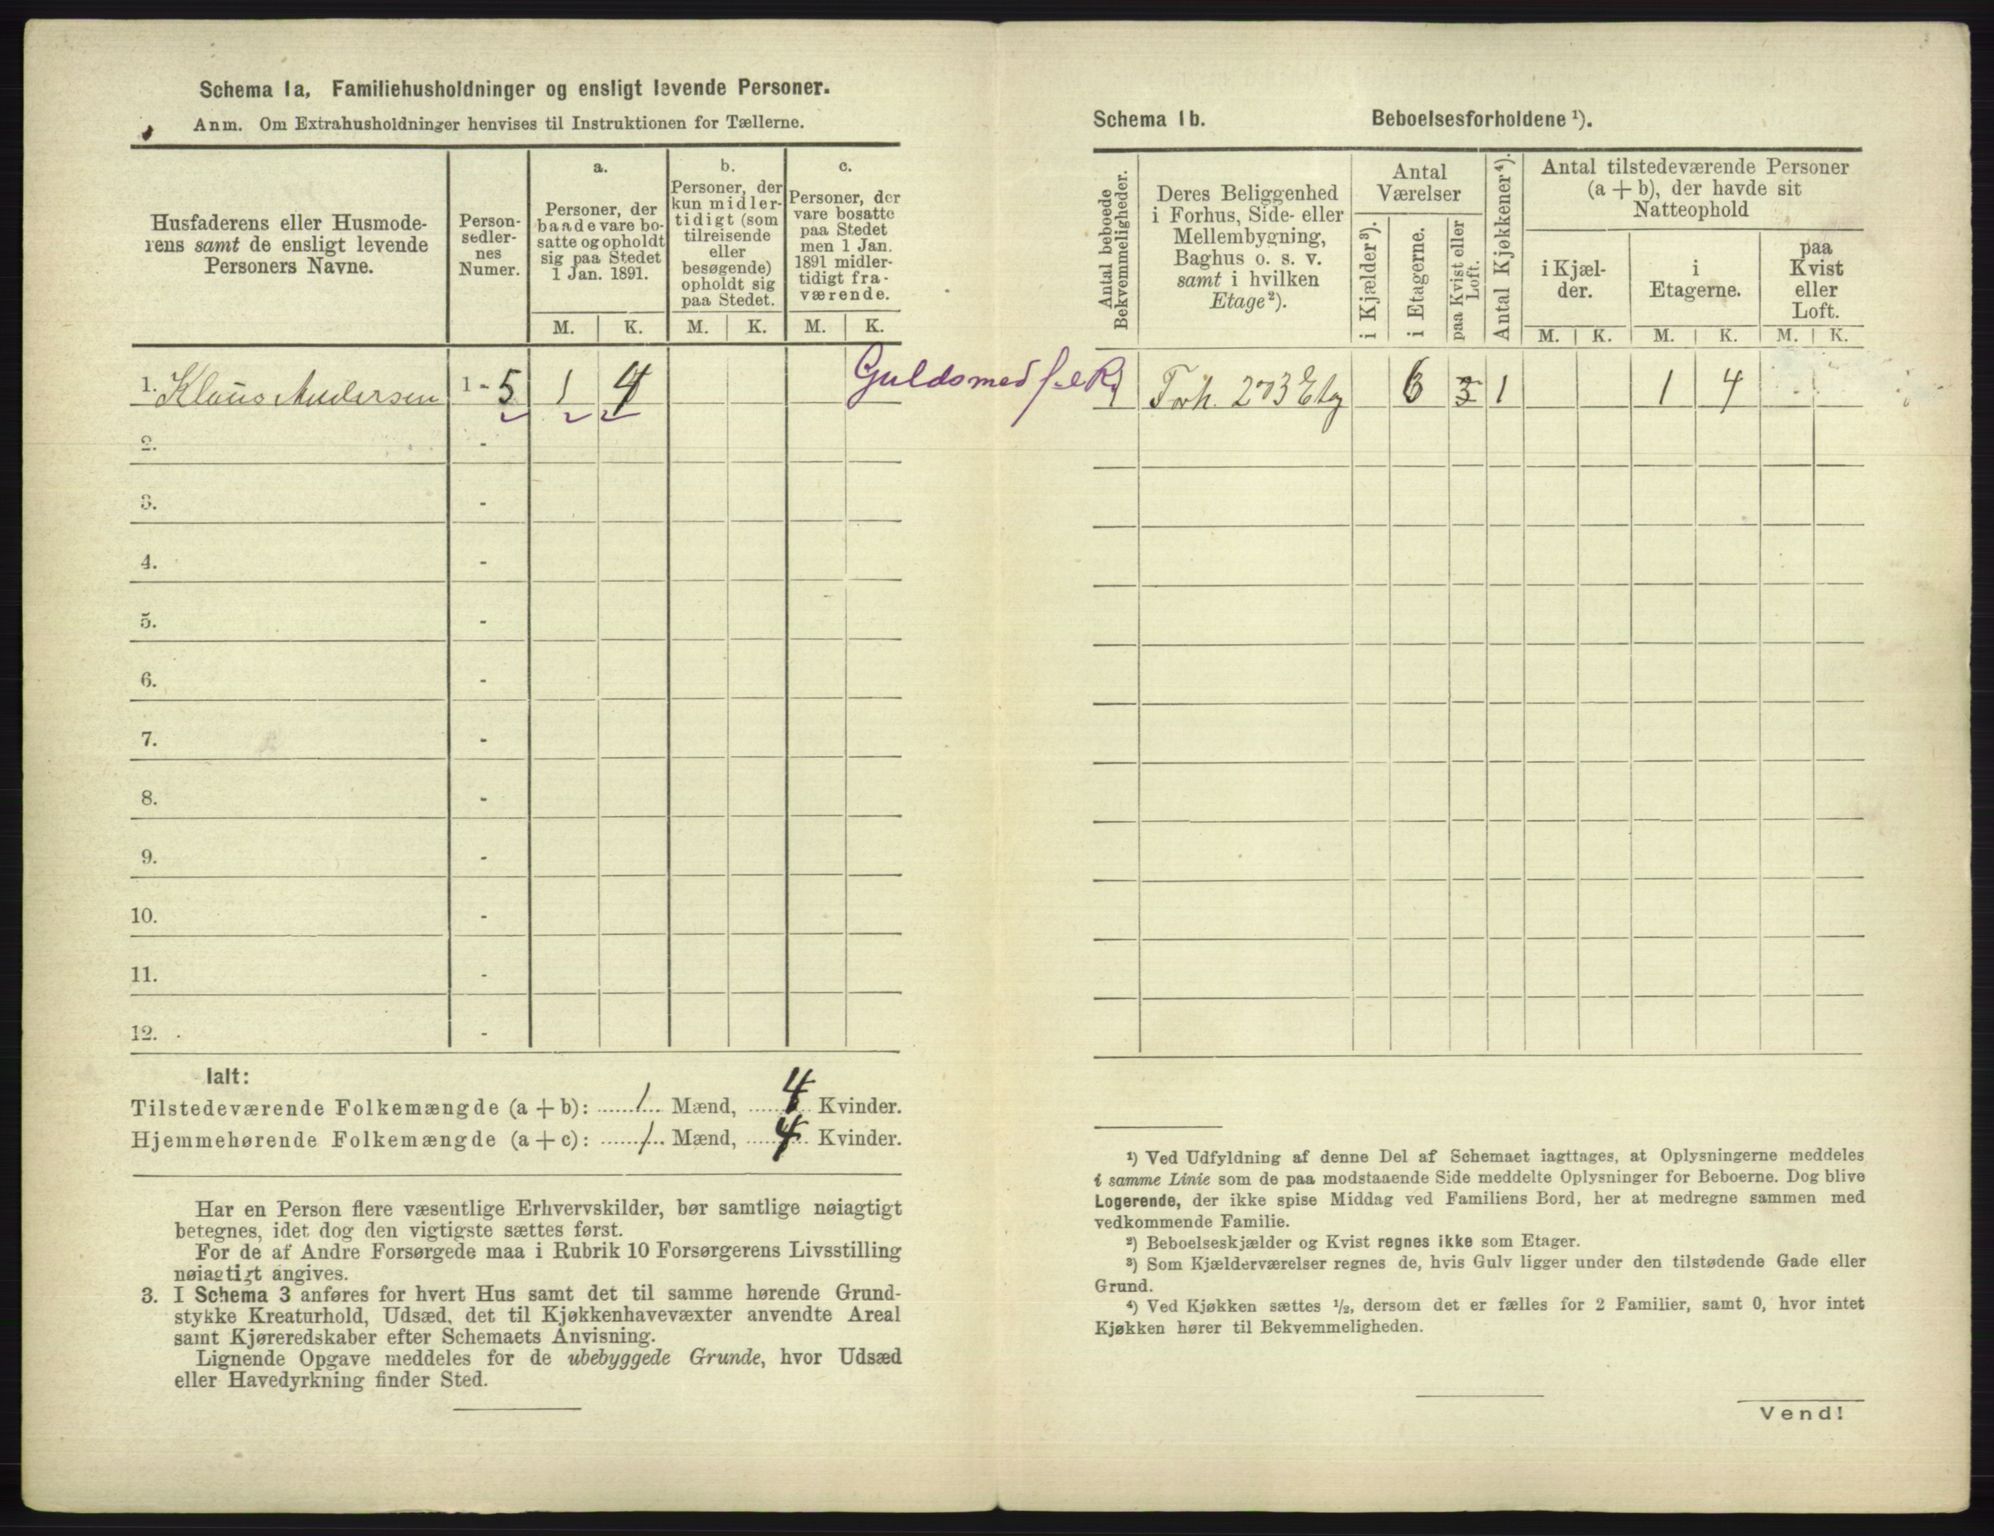 Schema 1a, Familiehusholdninger og ensligt levende Personer.
Anm. Om Extrahusholdninger henvises til Instruktionen for Tællerne.
Husfaderens eller Husmode-
rens samt de ensligt levende
Personers Navne.
Person-
sedler-
nes
Numer.
a.
Personer, der
baade vare bo-
satte og opholdt
sig paa Stedet
1 Jan. 1891.
b.
Personer, der
kun midler-
tidigt (som
tilreisende
eller
besøgende)
opholdt sig
paa Stedet.
c.
Personer, der
vare bosatte
paa Stedet
men 1 Jan.
1891 midler-
tidigt fra-
værende.
M. K. M. K. M. K.
1. Klaus Andersen 1 - 5 1 4 Guldsmed
2. -
3. -
4. -
5. -
6. -
7. -
8. -
9. -
10. -
11. -
12. -
Ialt:
Tilstedeværende Folkemængde (a + b): 1 Mænd, 4 Kvinder.
Hjemmehørende Folkemængde (a + c): 1 Mænd, 4 Kvinder.
Har en Person flere væsentlige Erhvervskilder, bør samtlige nøiagtigt
betegnes, idet dog den vigtigste sættes først.
For de af Andre Forsørgede maa i Rubrik 10 Forsørgerens Livsstilling
nøiagtigt angives.
3. I Schema 3 anføres for hvert Hus samt det til samme hørende Grund-
stykke Kreaturhold, Udsæd, det til Kjøkkenhavevæxter anvendte Areal
samt Kjøreredskaber efter Schemaets Anvisning.
Lignende Opgave meddeles for de ubebyggede Grunde, hvor Udsæd
eller Havedyrkning finder Sted.
Schema 1b. Beboelsesforholdene ¹).
Antal beboede
Bekvemmeligheder.
Deres Beliggenhed
i Forhus, Side- eller
Mellembygning,
Baghus o. s. v.
samt i hvilken
Etage²).
Antal
Værelser
i Kjælder³).
i Etagerne.
paa Kvist eller
Loft.
Antal Kjøkkener⁴).
Antal tilstedeværende Personer
(a + b), der havde sit
Natteophold
i Kjæl-
der.
i
Etagerne.
paa
Kvist
eller
Loft.
M. K. M. K. M. K.
1 Forh. 2 & 3 Etg 6 3 1 1 4
¹) Ved Udfyldning af denne Del af Schemaet iagttages, at Oplysningerne meddeles
i samme Linie som de paa modstaaende Side meddelte Oplysninger for Beboerne. Dog blive
Logerende, der ikke spise Middag ved Familiens Bord, her at medregne sammen med
vedkommende Familie.
²) Beboelseskjælder og Kvist regnes ikke som Etager.
³) Som Kjælderværelser regnes de, hvis Gulv ligger under den tilstødende Gade eller
Grund.
⁴) Ved Kjøkken sættes ½, dersom det er fælles for 2 Familier, samt 0, hvor intet
Kjøkken hører til Bekvemmeligheden.
Vend!